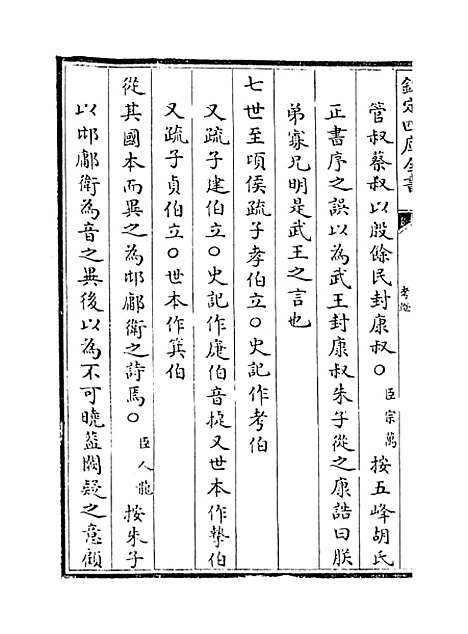 欽定四庫全書
考證
管叔蔡叔以殷餘民封康叔〇臣宗萬按五峰胡氏
正書序之誤以為武王封康叔朱子從之康誥曰朕
弟寡兄明是武王之言也
七世至頃侯疏子孝伯立〇史記作考伯
又疏子建伯立〇史記作庢伯音㨗又世本作摯伯
又疏子貞伯立〇世本作箕伯
從其國本而異之為邶鄘衛之詩焉〇臣人龍按朱子
以邶鄘衛為音之異後以為不可曉葢闕疑之意顧